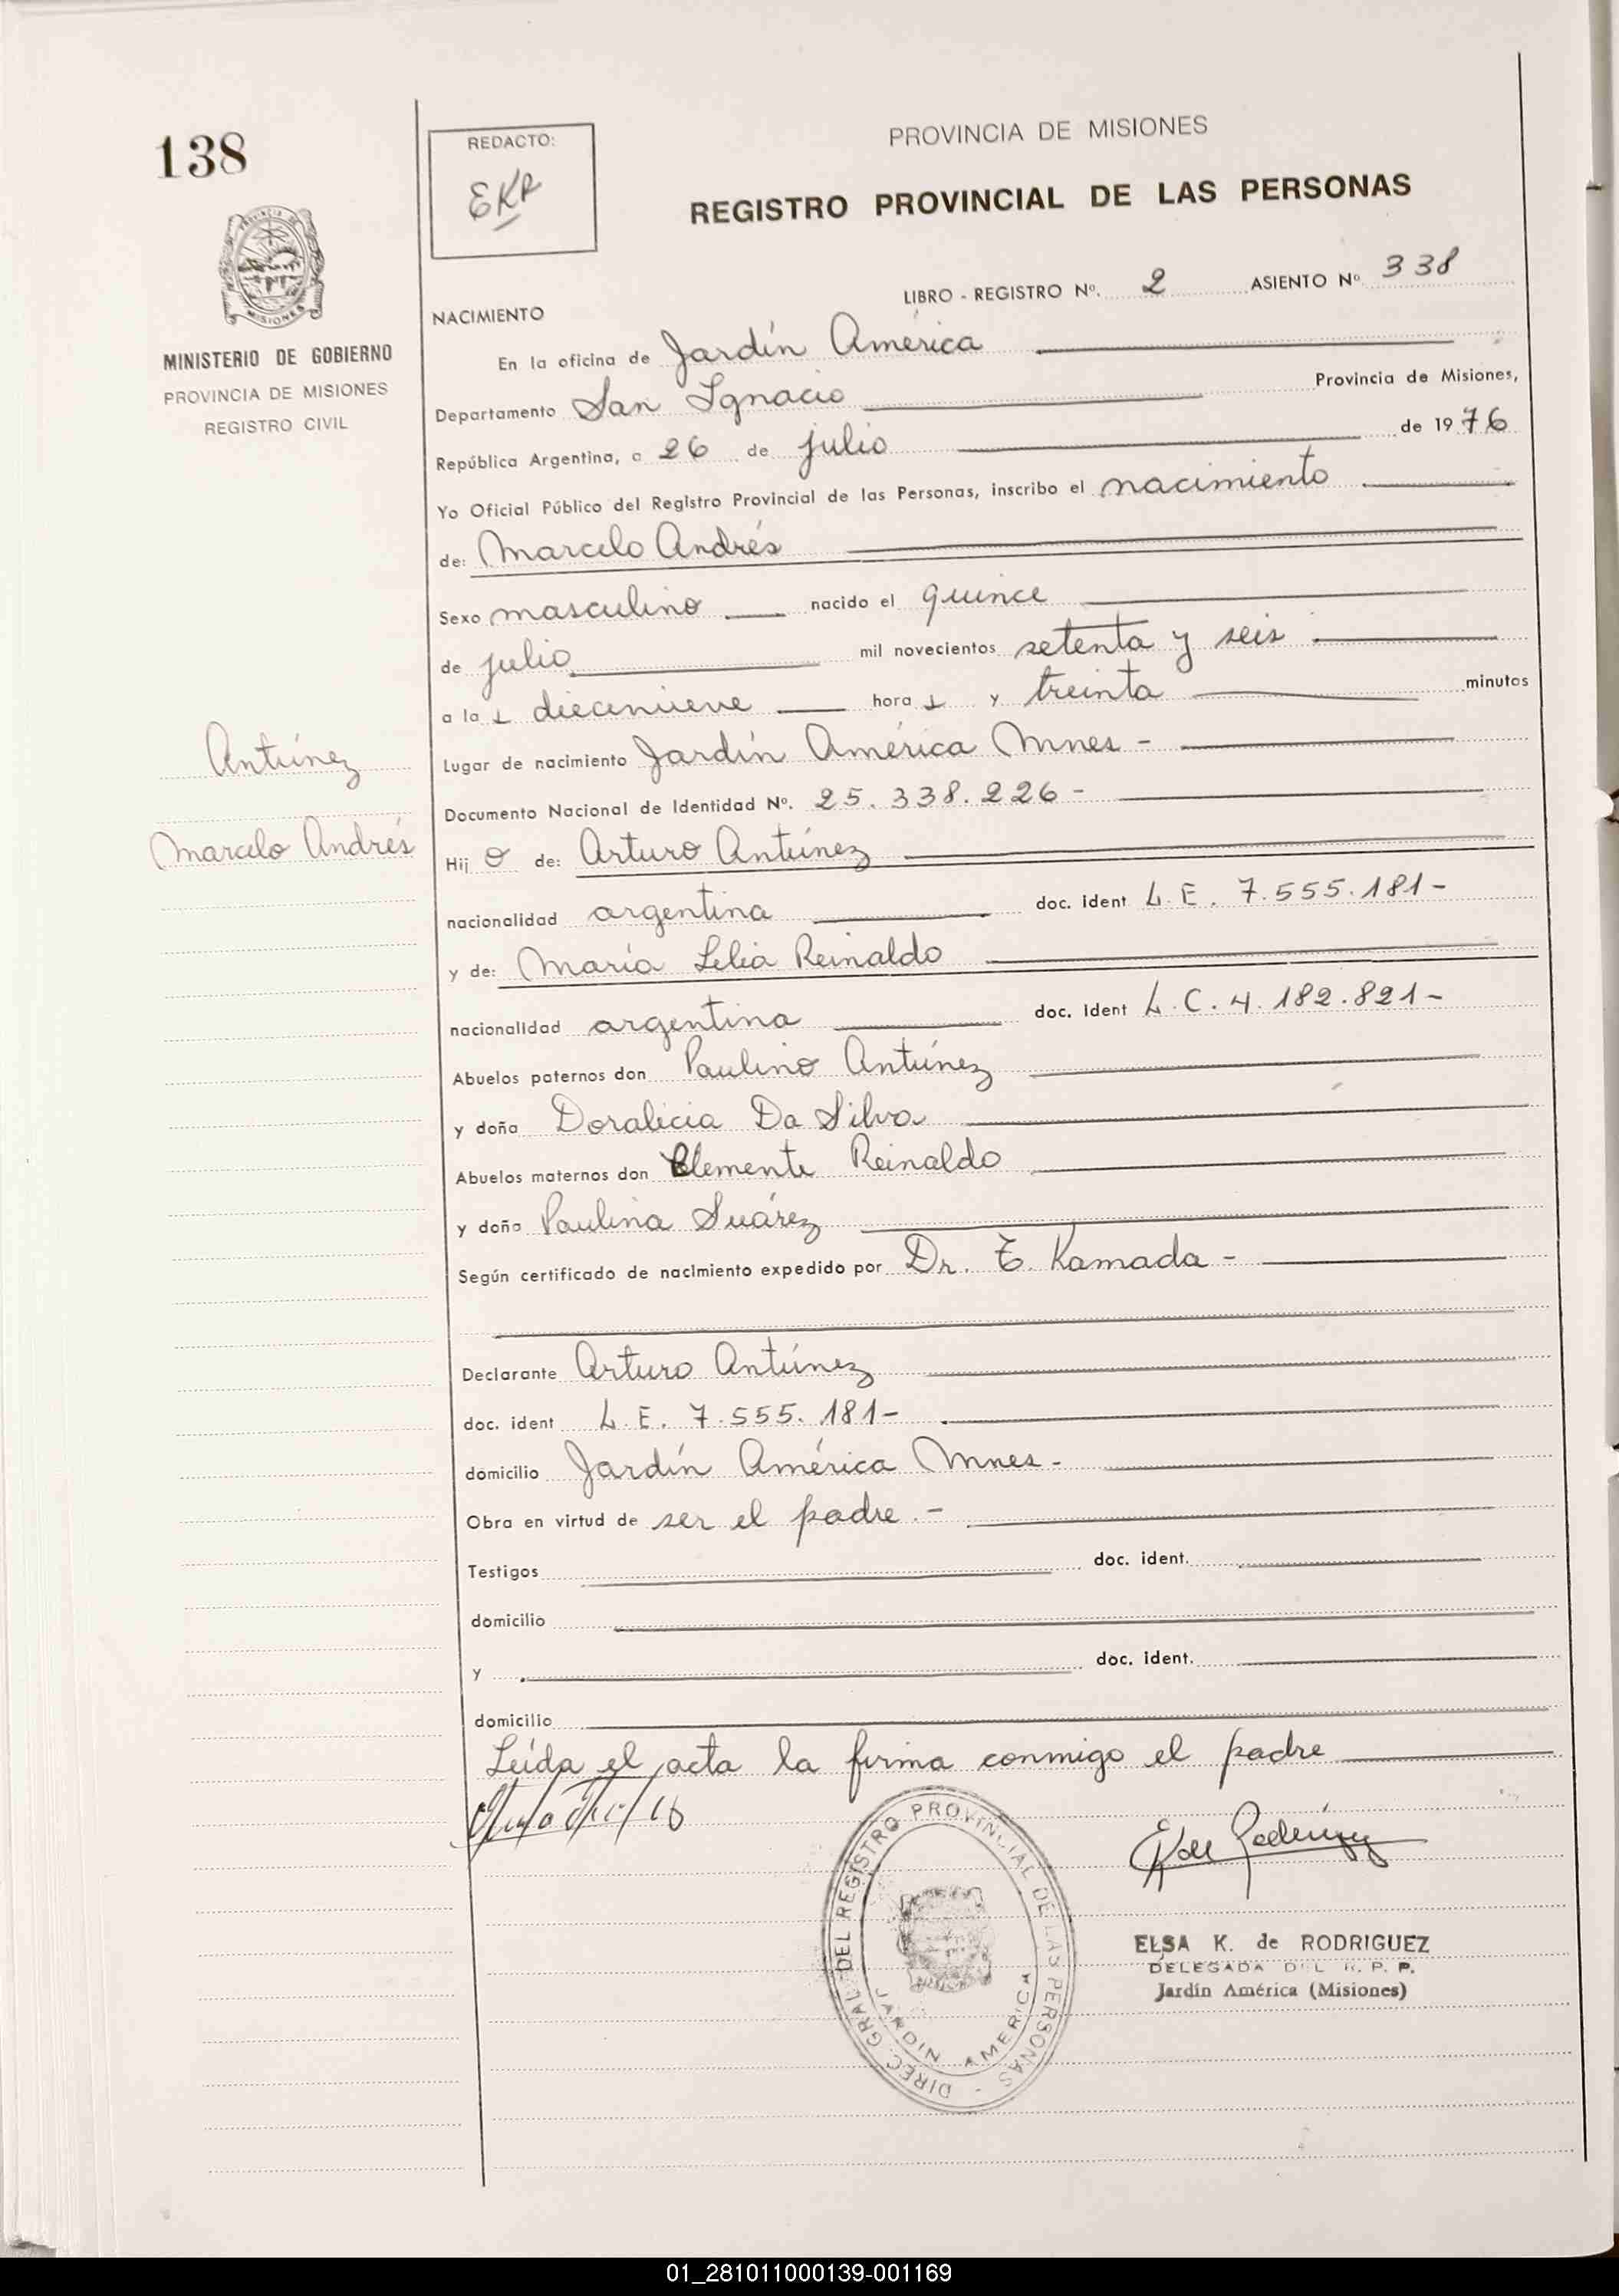 138
REDACTO:
EKR
PROVINCIA DE MISIONES
REGISTRO PROVINCIAL DE LAS PERSONAS
MINISTERIO DE GOBIERNO
PROVINCIA DE MISIONES
REGISTRO CIVIL
LIBRO - REGISTRO Nº. 2 ASIENTO Nº 338
NACIMIENTO
En la oficina de Jardín América
Departamento San Ignacio Provincia de Misiones,
República Argentina, a 26 de julio de 1976
Yo Oficial Público del Registro Provincial de las Personas, inscribo el nacimiento
de: Marcelo Andrés
Sexo masculino nacido el quince
de julio mil novecientos setenta y seis
a las diecinueve horas y treinta minutos
Lugar de nacimiento Jardín América Mnes -
Antúnez
Documento Nacional de Identidad Nº. 25.338.226 -
Marcelo Andrés
Hijo de: Arturo Antúnez
nacionalidad argentina doc. ident L.E. 7.555.181-
y de: María Lelia Reinaldo
nacionalidad argentina doc. ident L.C. 4.182.821-
Abuelos paternos don Paulino Antúnez
y doña Doralicia Da Silva
Abuelos maternos don Clemente Reinaldo
y doña Paulina Suárez
Según certificado de nacimiento expedido por Dr. T. Kamada -
Declarante Arturo Antúnez
doc. ident L.E. 7.555.181-
domicilio Jardín América Mnes -
Obra en virtud de ser el padre.-
Testigos doc. ident.
domicilio
y doc. ident.
domicilio
Leída el acta la firma conmigo el padre
DIREC. GRAL. DEL REGISTRO PROVINCIAL DE LAS PERSONAS -
JARDIN AMERICA
ELSA K. de RODRIGUEZ
DELEGADA DEL R. P. P.
Jardín América (Misiones)
01_281011000139-001169